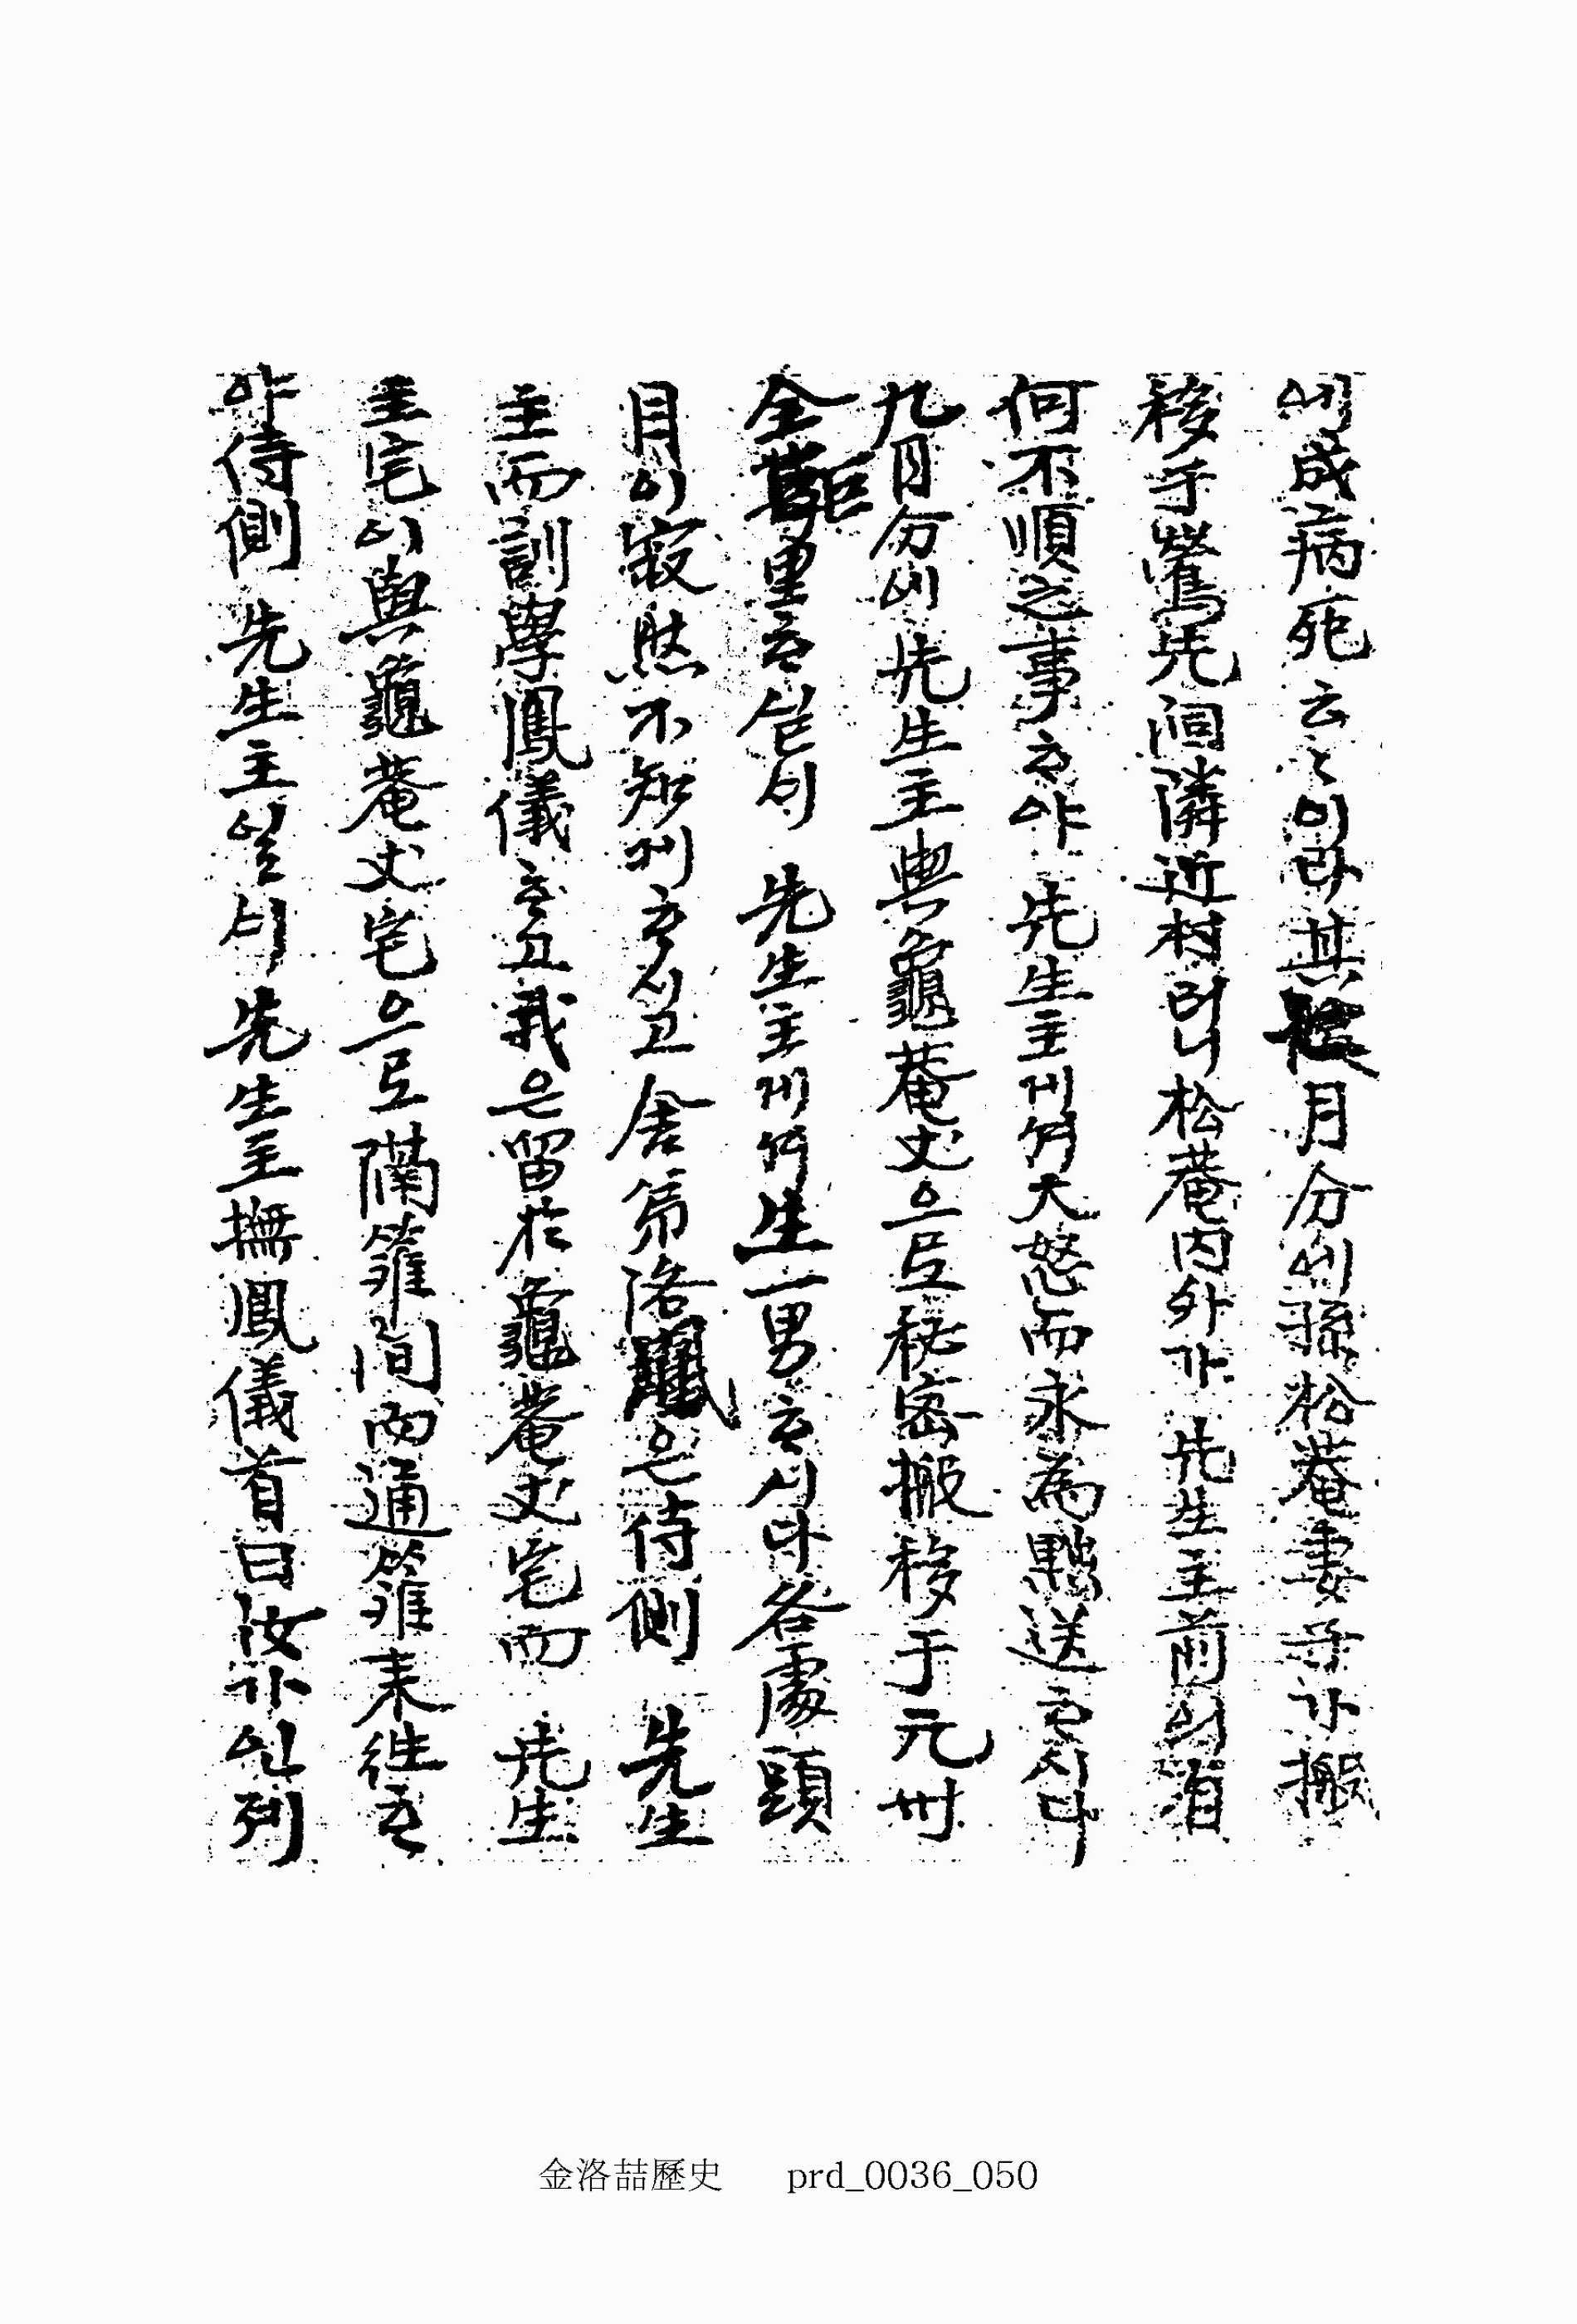 에成病死云々이라其月分에孫松菴妻子가搬
移于鶯先洞隣近村러니松菴内外가 先生主前의有
何不順之事하야 先生主게셔大怒而永為黜送하시다
九月分에 先生主與龜菴丈으로秘密搬移于元州
全巨里하실시 先生主게셔生一男하시다各處頭
目이寂然不知케하시고舍弟洛은侍側 先生
主而訓學鳳儀하고我은留於龜菴丈宅而 先生
主宅이與龜菴丈宅으로隔籬間而通籬來往吾
야侍側 先生主일 先生主撫鳳儀首曰汝가인